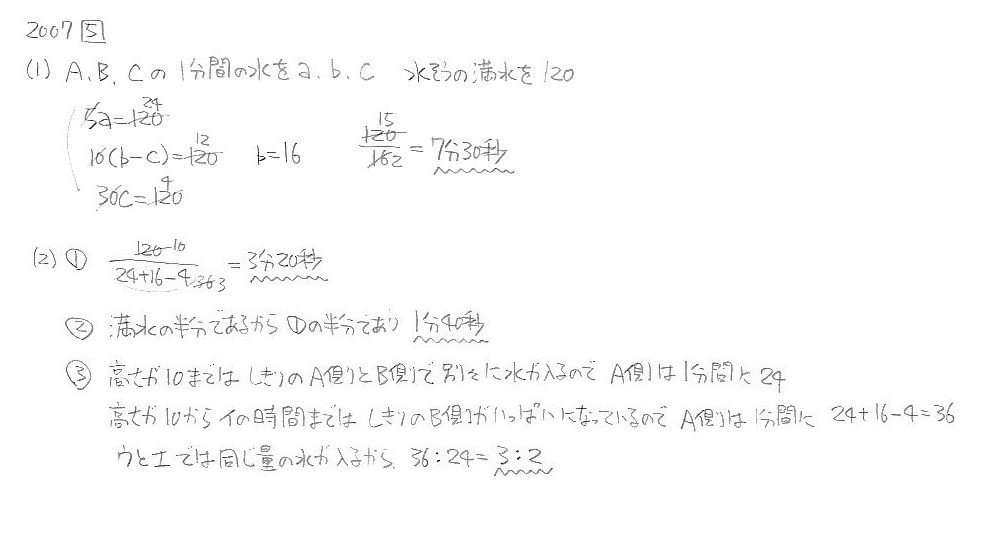 2007 5
(1) A、B、Cの1分間の水をa、b、c 水そうの満水を120
5a=120 24
10(b-c)=120 12 b=16 120 15/16 2=7分30秒
30c=120 4
(2) ① 120 10/24+16-4 36 3=3分20秒
② 満水の半分であるから①の半分であり 1分40秒
③ 高さが10まではしきりのA側とB側で別々に水が入るので A側は1分間に24
高さが10からイの時間まではしきりのB側がいっぱいになっているので A側は1分間に 24+16-4=36
ウとエでは同じ量の水が入るから、36:24=3:2